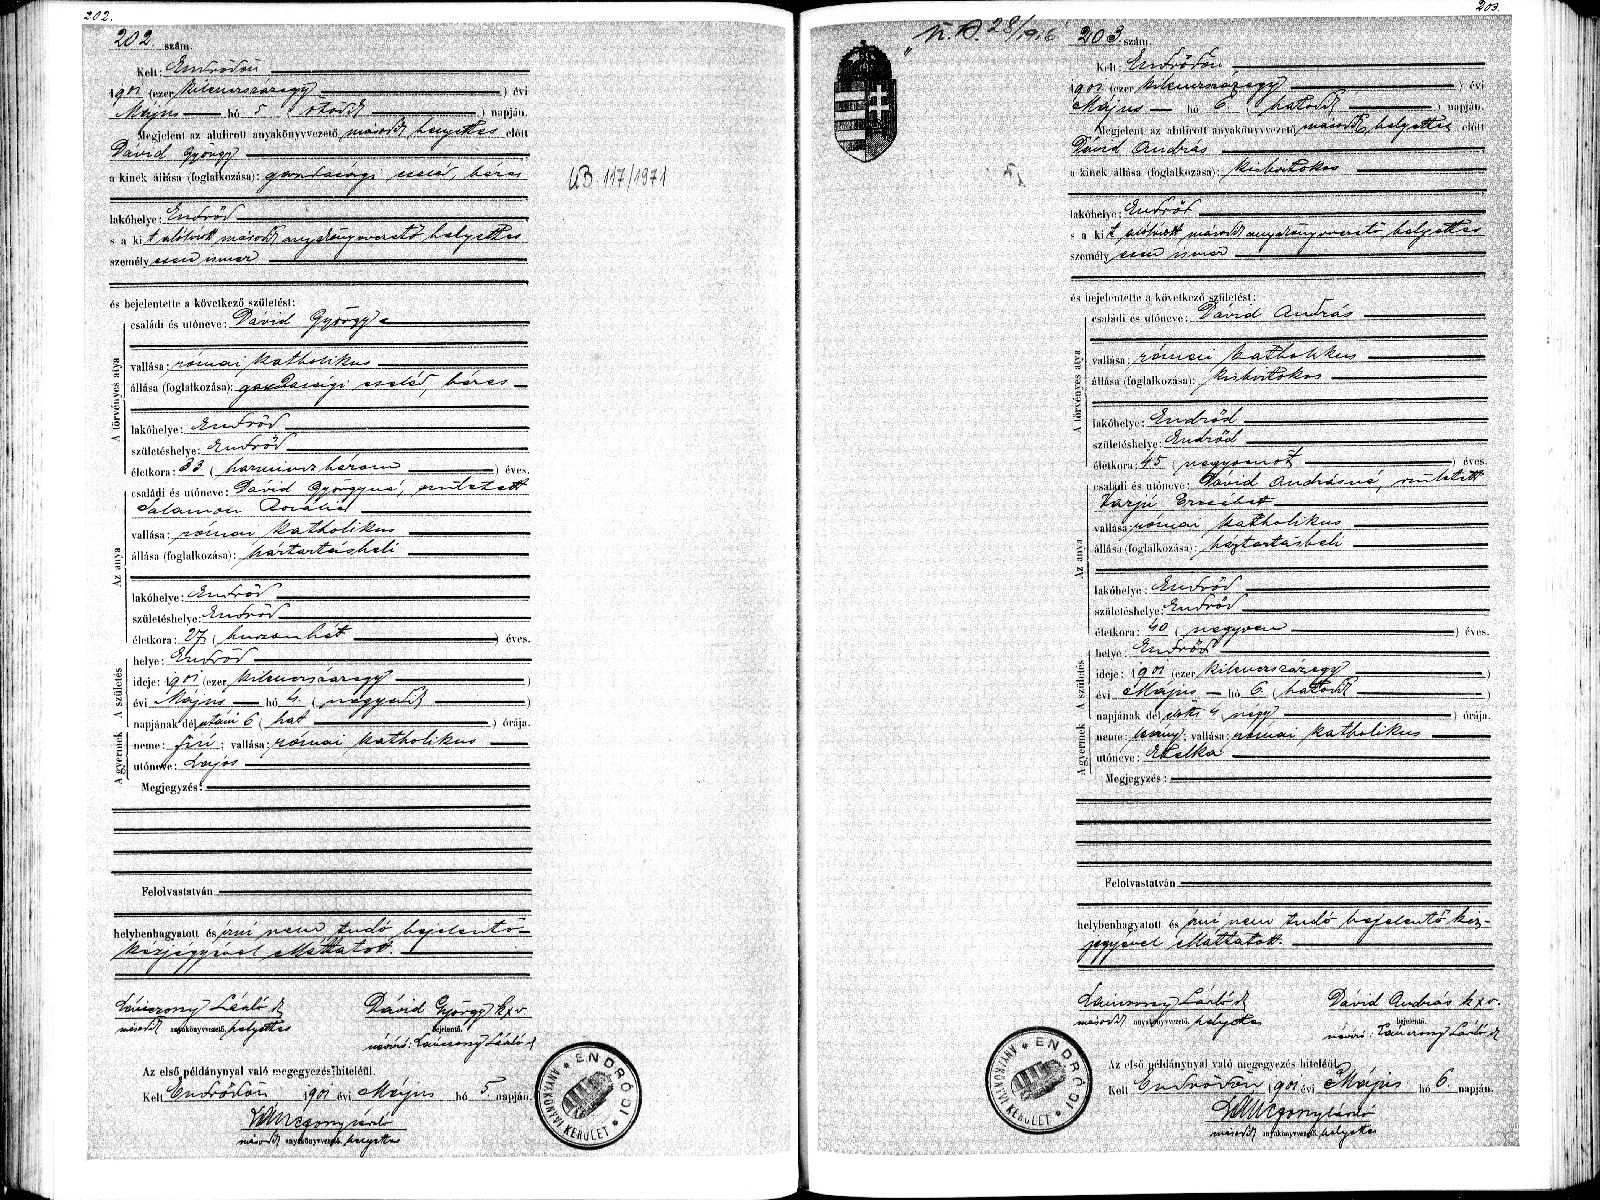 202.
202. szám.
Kelt: Endrődön
1901 (ezer kilenczszázegy) évi
Május hó 5 ( ötödik ) napján.
Megjelent az alulirott anyakönyvvezető másodk helyettes előtt
Dávid György
a kinek állása (foglalkozása): gazdasági cseléd, béres
lakóhelye: Endrőd
s a kit alólirott másodk anyakönyvvezető helyettes
személyesen ismer
és bejelentette a következő születést:
A törvényes atya
családi és utóneve: Dávid György
vallása: római katholikus
állása (foglalkozása): gazdasági cseléd, béres
lakóhelye: Endrőd
születéshelye: Endrőd
életkora: 33 ( harminczhárom ) éves.
Az anya
családi és utóneve: Dávid Györgyné, született
Salamon Rozália
vallása: római katholikus
állása (foglalkozása): háztartásbeli
lakóhelye: Endrőd
születéshelye: Endrőd
életkora: 27 ( huszonhét ) éves.
A születés
helye: Endrőd
ideje: 1901 (ezer kilenczszázegy )
évi Május hó 4. ( negyedik )
napjának dél utáni 6 ( hat ) órája.
A gyermek
neme: fiú; vallása: római katholikus
utóneve: Lajos
Megjegyzés:
Felolvastatván
helybenhagyatott és irni nem tudó bejelentő
kézjegyével elláttatott.
Lánczony László
másodk anyakönyvvezető. helyettes
Dávid György k x v
bejelentő.
névíró: Lánczony László
Az első példánynyal való megegyezés hiteléül.
Kelt Endrődön, 1901 évi Május hó 5 napján.
Lánczony László
másodk anyakönyvvezető. helyettes
ENDRŐDI ANYAKÖNYVI KERÜLET
UB 117/1971
203.
28/1916
203 szám.
Kelt: Endrődön
1901 (ezer kilenczszázegy ) évi
Május hó 6. ( hatodik ) napján.
Megjelent az alulirott anyakönyvvezető másodk helyettes előtt
Dávid András
a kinek állása (foglalkozása): kisbirtokos
lakóhelye: Endrőd
s a kit alólirott másodk anyakönyvvezető helyettes
személyesen ismer
és bejelentette a következő születést:
A törvényes atya
családi és utóneve: Dávid András
vallása: római katholikus
állása (foglalkozása): kisbirtokos
lakóhelye: Endrőd
születéshelye: Endrőd
életkora: 45 ( negyvenöt ) éves.
Az anya
családi és utóneve: Dávid Andrásné, született
Varjú Erzsébet
vallása: római katholikus
állása (foglalkozása): háztartásbeli
lakóhelye: Endrőd
születéshelye: Endrőd
életkora: 40 ( negyven ) éves.
A születés
helye: Endrőd
ideje: 1901 (ezer kilenczszázegy )
évi Május hó 6. ( hatodik )
napjának dél előtti 4 ( négy ) órája.
A gyermek
neme: leány; vallása: római katholikus
utóneve: Etelka
Megjegyzés:
Felolvastatván
helybenhagyatott és irni nem tudó bejelentő kéz-
jegyével elláttatott.
Lánczony László
másodk anyakönyvvezető. helyettes
Dávid András k x v.
bejelentő.
névíró: Lánczony László
Az első példánynyal való megegyezés hiteléül.
Kelt Endrődön, 1901 évi Május hó 6 napján.
Lánczony László
másodk anyakönyvvezető. helyettes
ENDRŐDI ANYAKÖNYVI KERÜLET